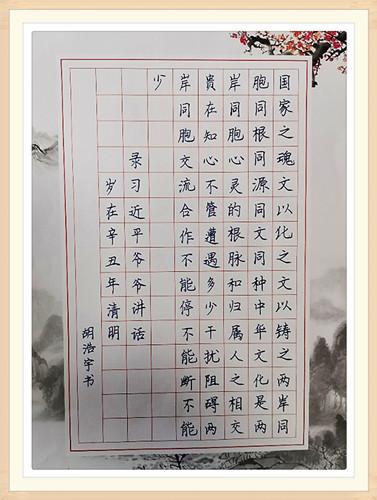 国家之魂文以化之文以铸之两岸同
胞同根同源同文同种中华文化是两
岸同胞心灵的根脉和归属人之相交
贵在知心不管遭遇多少干扰阻碍两
岸同胞交流合作不能停不能断不能
少
录习近平爷爷讲话
岁在辛丑年清明
胡浩宇书